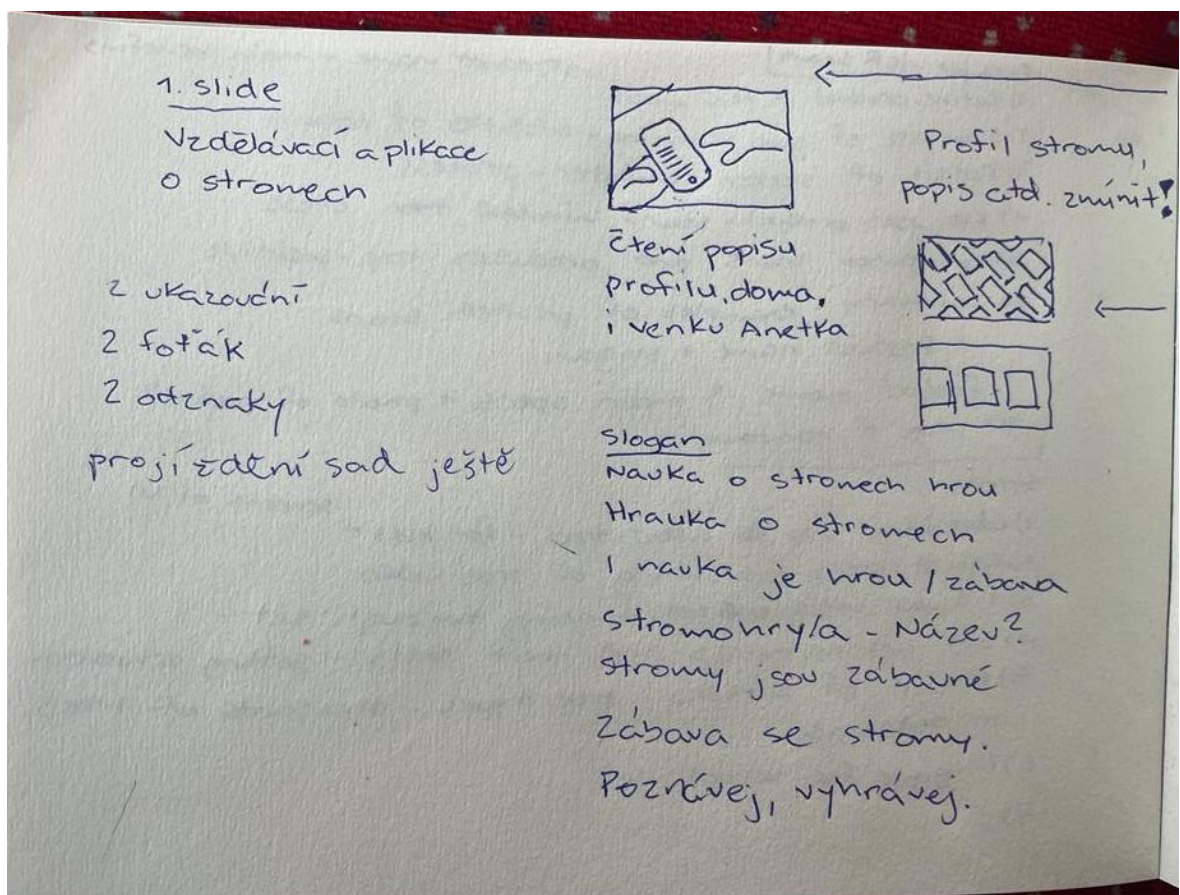 1. slide
Vzdělávací aplikace
o stromech
2 ukazování
2 foťák
2 odznaky
projíždění sad ještě
čtení popisu
profilu, doma,
i venku Anetka
Profil stromu,
popis atd. zmínit!
Slogan
Nauka o stromech hrou
Hrauka o stromech
I nauka je hrou / zábava
Stromohry/a - Název?
Stromy jsou zábavné
Zábava se stromy.
Poznávej, vyhrávej.